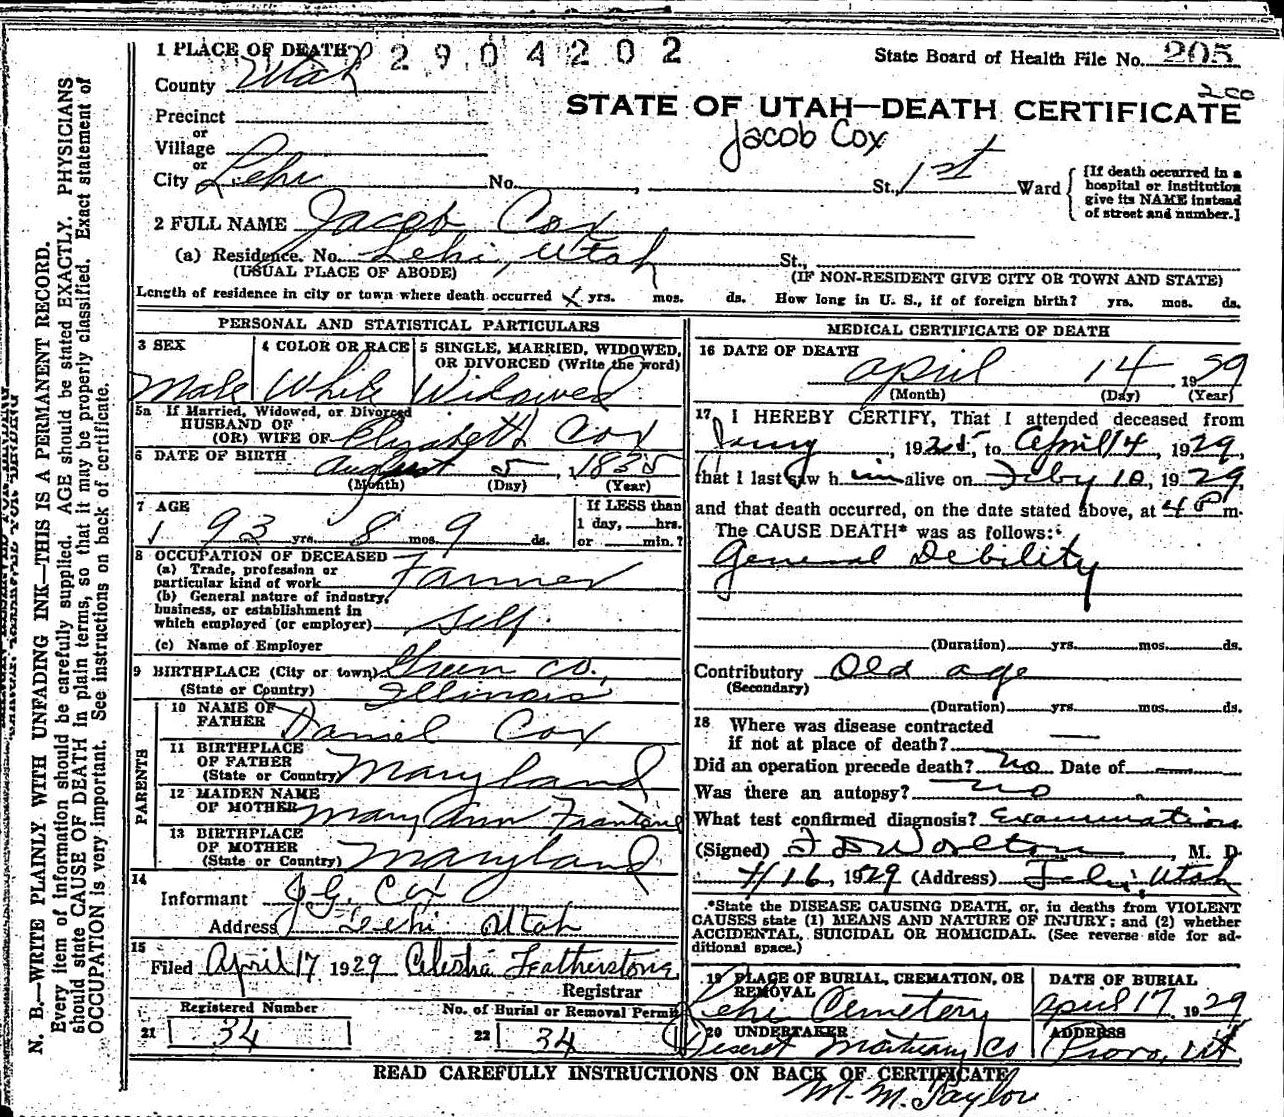 1 PLACE OF DEATH 2904202 State Board of Health File No. 205
County Utah 200
STATE OF UTAH—DEATH CERTIFICATE
Precinct
Jacob Cox
or
Village
or
City Lehi No. , St., 1st Ward
[If death occurred in a
hospital or institution
give its NAME instead
of street and number.]
2 FULL NAME Jacob Cox
(a) Residence. No. Lehi, Utah St.,
(USUAL PLACE OF ABODE) (IF NON-RESIDENT GIVE CITY OR TOWN AND STATE)
Length of residence in city or town where death occurred x yrs. mos. ds. How long in U. S., if of foreign birth? yrs. mos. ds.
PERSONAL AND STATISTICAL PARTICULARS
3 SEX 4 COLOR OR RACE 5 SINGLE, MARRIED, WIDOWED,
OR DIVORCED (Write the word)
Male White Widowed
5a If Married, Widowed, or Divorced
HUSBAND OF
(OR) WIFE OF Elizabeth Cox
6 DATE OF BIRTH August 5, 1835
(Month) (Day) (Year)
7 AGE If LESS than
93 yrs. 8 mos. 9 ds. 1 day, hrs.
or min.?
8 OCCUPATION OF DECEASED
(a) Trade, profession or
particular kind of work Farmer
(b) General nature of industry,
business, or establishment in
which employed (or employer) Self.
(c) Name of Employer
9 BIRTHPLACE (City or town) Green Co.,
(State or Country) Illinois
PARENTS
10 NAME OF
FATHER Daniel Cox
11 BIRTHPLACE
OF FATHER
(State or Country) Maryland
12 MAIDEN NAME
OF MOTHER Mary Ann
13 BIRTHPLACE
OF MOTHER
(State or Country) Maryland
14
Informant J.G. Cox
Address Lehi Utah
15
Filed April 17 1929 Celestia Featherstone
Registrar
Registered Number No. of Burial or Removal Permit
21 34 22 34
MEDICAL CERTIFICATE OF DEATH
16 DATE OF DEATH
April 14 1929
(Month) (Day) (Year)
17 I HEREBY CERTIFY, That I attended deceased from
, 1925, to April 14, 1929,
that I last saw him alive on Feby 10, 1929,
and that death occurred, on the date stated above, at 4 P m.
The CAUSE DEATH* was as follows:
General Debility
(Duration) yrs. mos. ds.
Contributory Old age
(Secondary)
(Duration) yrs. mos. ds.
18 Where was disease contracted
if not at place of death? —
Did an operation precede death? No Date of —
Was there an autopsy? No
What test confirmed diagnosis? Examination
(Signed) , M. D.
4/16, 1929 (Address) Lehi, Utah
*State the DISEASE CAUSING DEATH, or, in deaths from VIOLENT
CAUSES state (1) MEANS AND NATURE OF INJURY; and (2) whether
ACCIDENTAL, SUICIDAL OR HOMICIDAL. (See reverse side for ad-
ditional space.)
19 PLACE OF BURIAL, CREMATION, OR
REMOVAL DATE OF BURIAL
Lehi Cemetery April 17, 1929
20 UNDERTAKER ADDRESS
Deseret Mortuary Co Provo, Ut
READ CAREFULLY INSTRUCTIONS ON BACK OF CERTIFICATE
M. M. Taylor
N. B.—WRITE PLAINLY WITH UNFADING INK—THIS IS A PERMANENT RECORD.
Every item of information should be carefully supplied. AGE should be stated EXACTLY. PHYSICIANS
should state CAUSE OF DEATH in plain terms, so that it may be properly classified. Exact statement of
OCCUPATION is very important. See instructions on back of certificate.